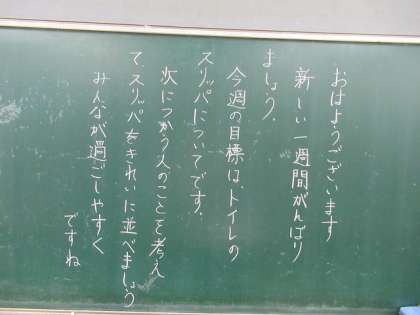 おはようございます
新しい一週間がんばり
ましょう。
今週の目標は、トイレの
スリッパについてです。
次につかう人のことを考え
て、スリッパをきれいに並べましょう
みんなが過ごしやすく
ですね